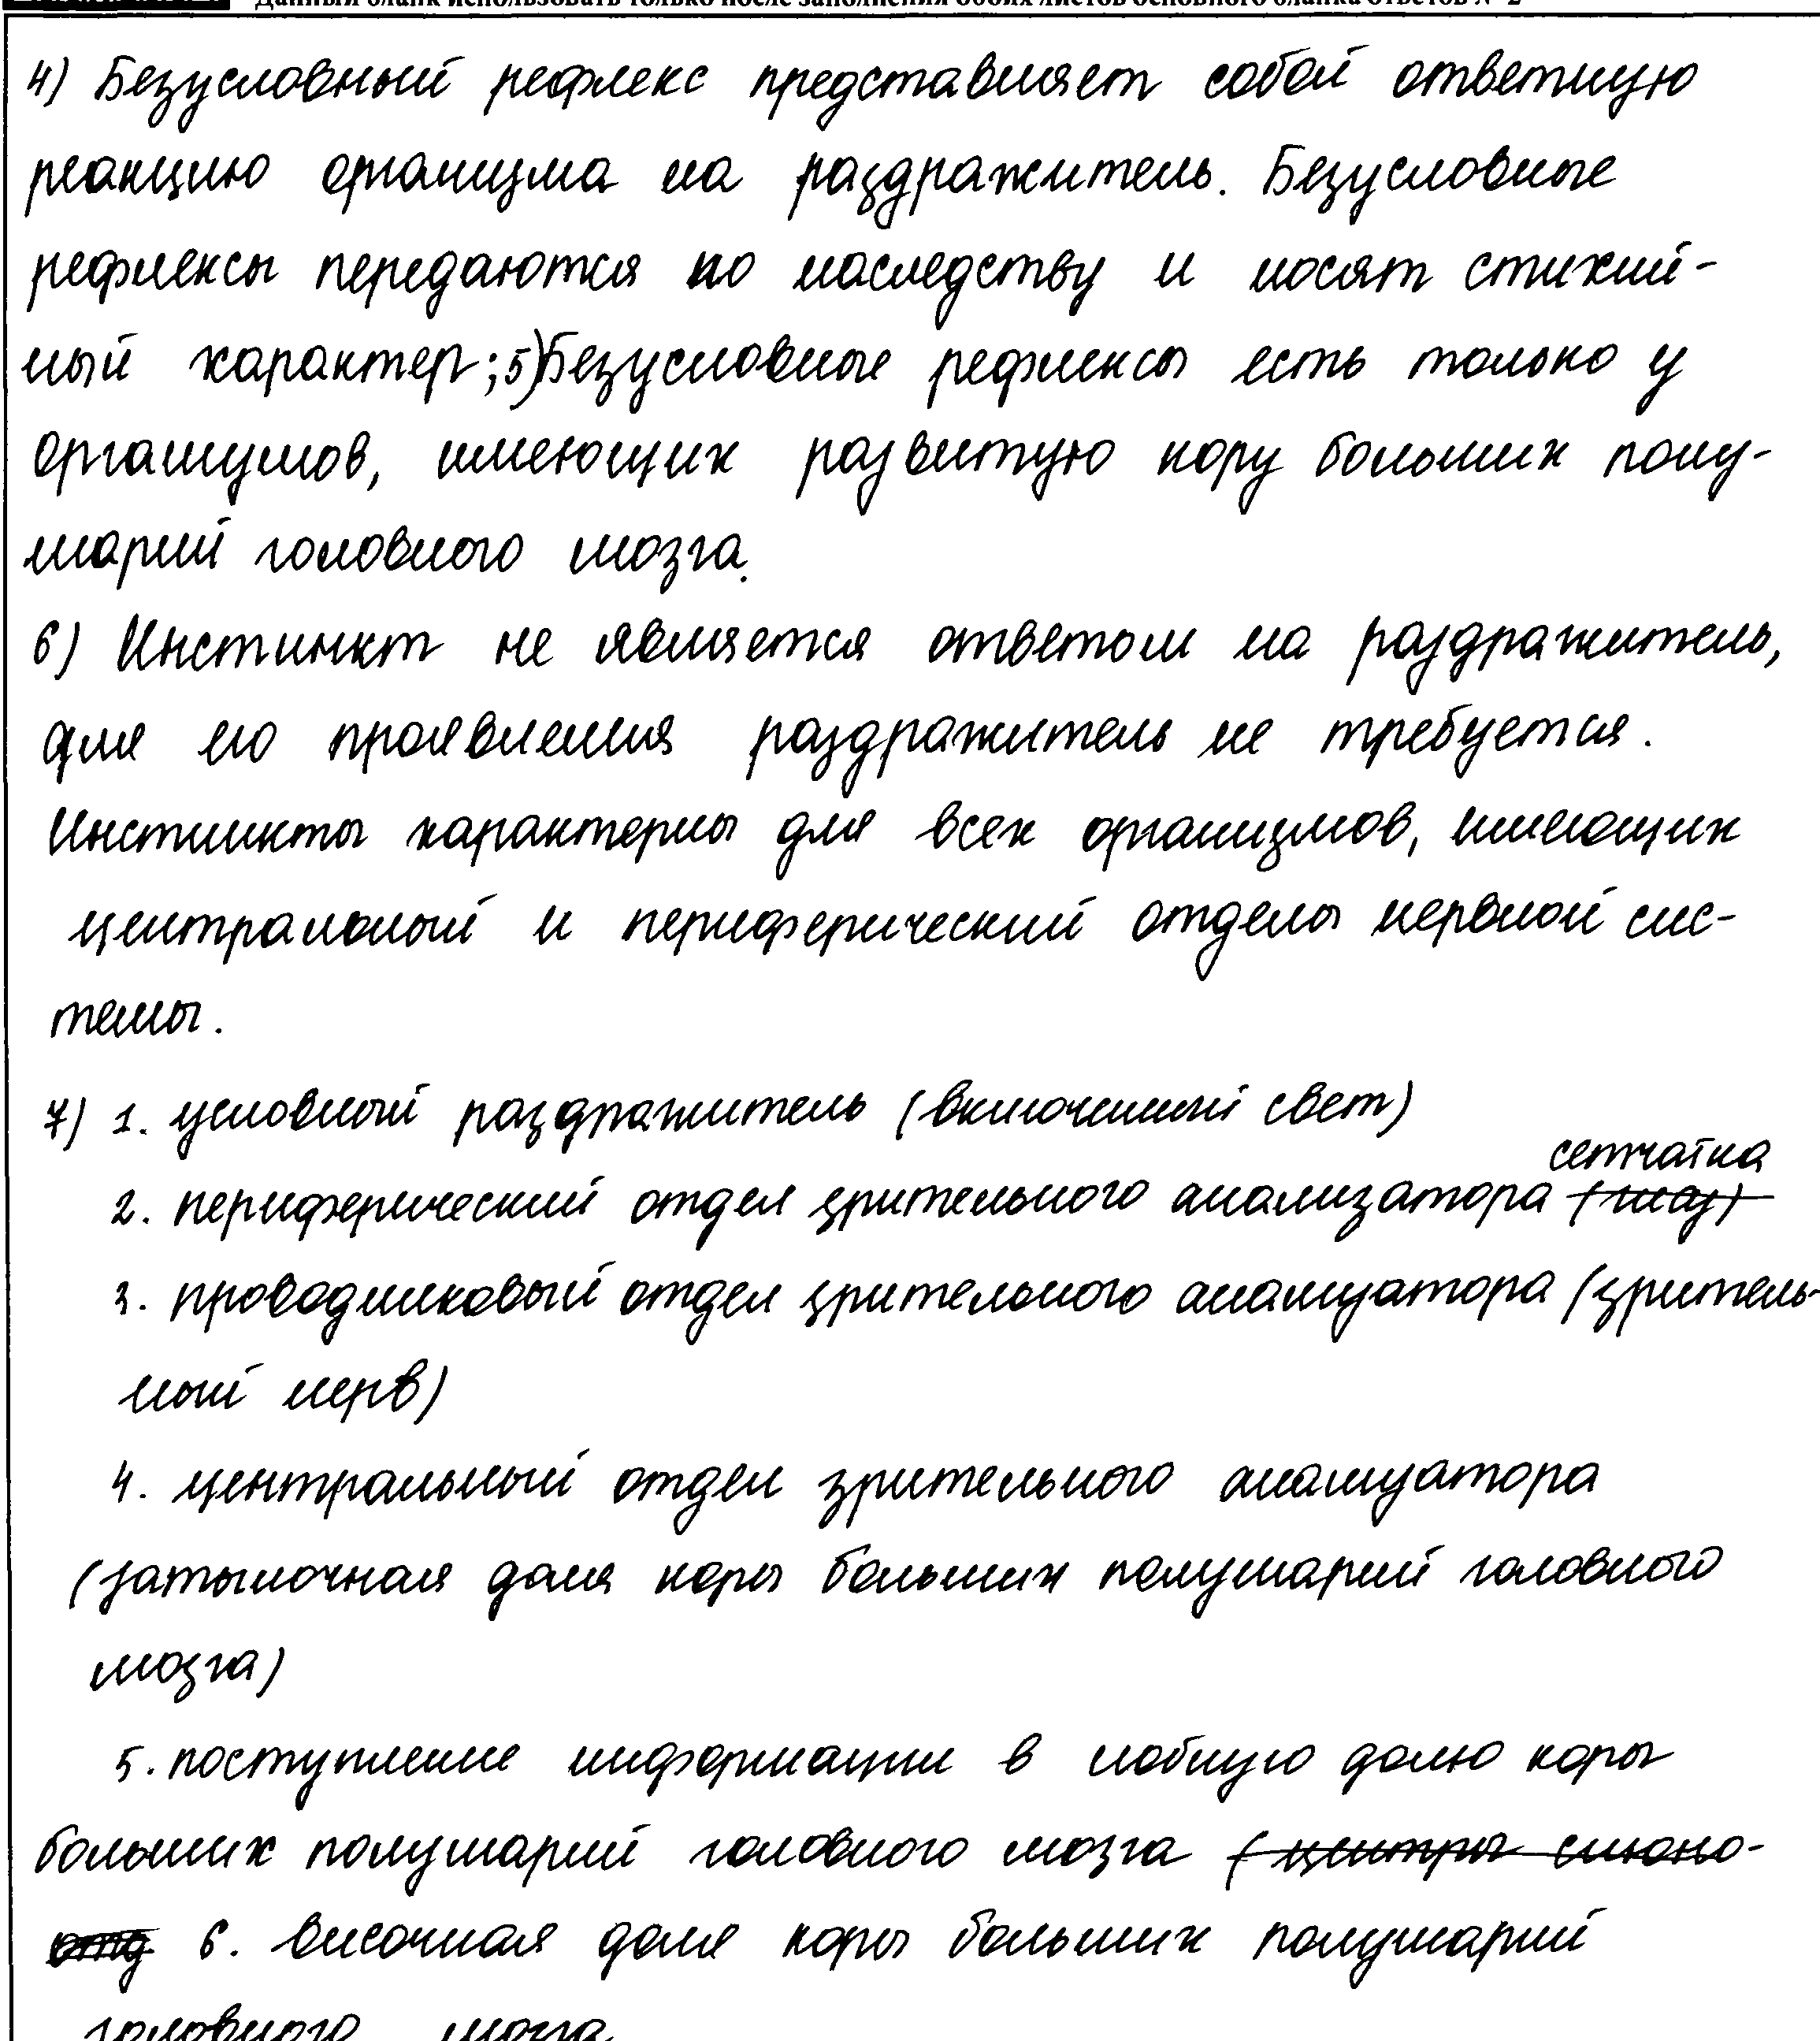 Данный бланк использовать только после заполнения обоих листов основного бланка ответов № 2
4) Безусловный рефлекс представляет собой ответную
реакцию организма на раздражитель. Безусловные
рефлексы передаются по наследству и носят стихий-
ный характер; 5) Безусловные рефлексы есть только у
организмов, имеющих развитую кору больших полу-
шарий головного мозга.
6) Инстинкт не является ответом на раздражитель,
для его проявления раздражитель не требуется.
Инстинкты характерны для всех организмов, имеющих
центральный и периферический отделы нервной сис-
темы.
7) 1. условный раздражитель (включенный свет)
сетчатка
2. периферический отдел зрительного анализатора (глаз)
3. проводниковый отдел зрительного анализатора (зритель-
ный нерв)
4. центральный отдел зрительного анализатора
(затылочная доля коры больших полушарий головного
мозга)
5. поступление информации в лобную долю коры
больших полушарий головного мозга (центры слюно-
отд 6. височная доля коры больших полушарий
головного мозга